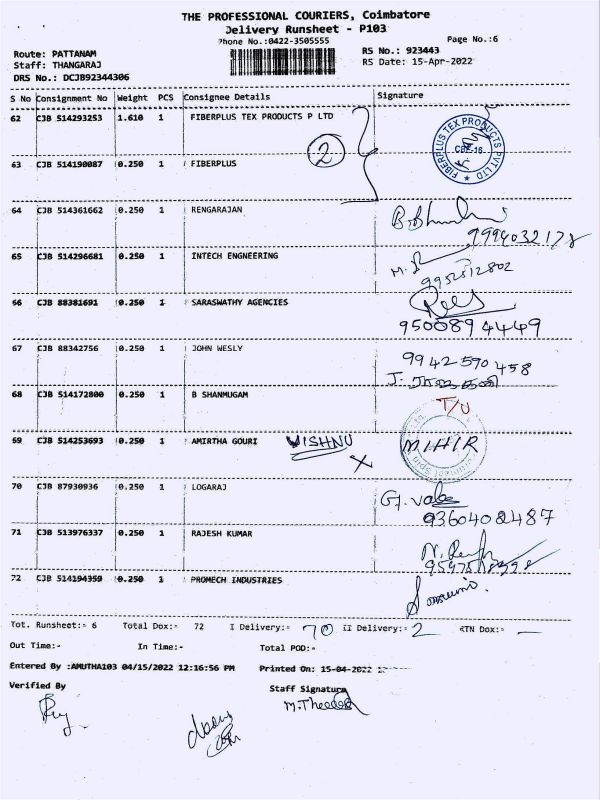 THE PROFESSIONAL COURIERS, Coimbatore
Delivery Runsheet - P103
Phone No.:0422-3505555 Page No.:6
Route: PATTANAM RS No.: 923443
Staff: THANGARAJ RS Date: 15-Apr-2022
DRS No.: DCJB92344306
S No Consignment No Weight PCS Consignee Details Signature
62 CJB 514293253 1.610 1 FIBERPLUS TEX PRODUCTS P LTD
FIBERPLUS TEX PRODUCTS PVT LTD ★ CBE-16
2
63 CJB 514190087 0.250 1 FIBERPLUS
64 CJB 514361662 0.250 1 RENGARAJAN
65 CJB 514296681 0.250 1 INTECH ENGNEERING
9952812802
66 CJB 88381691 0.250 1 SARASWATHY AGENCIES
9500894449
67 CJB 88342756 0.250 1 JOHN WESLY 9942590458
68 CJB 514172800 0.250 1 B SHANMUGAM T/U
69 CJB 514253693 0.250 1 AMIRTHA GOURI VISHNU X MIHIR
70 CJB 87930936 0.250 1 LOGARAJ
9360402487
71 CJB 513976337 0.250 1 RAJESH KUMAR
72 CJB 514194359 0.250 1 PROMECH INDUSTRIES
Tot. Runsheet:- 6 Total Dox:- 72 I Delivery:- 70 II Delivery:- 2 RTN Dox:- —
Out Time:- In Time:- Total POD:-
Entered By :AMUTHA103 04/15/2022 12:16:56 PM Printed On: 15-04-2022
Verified By Staff Signature